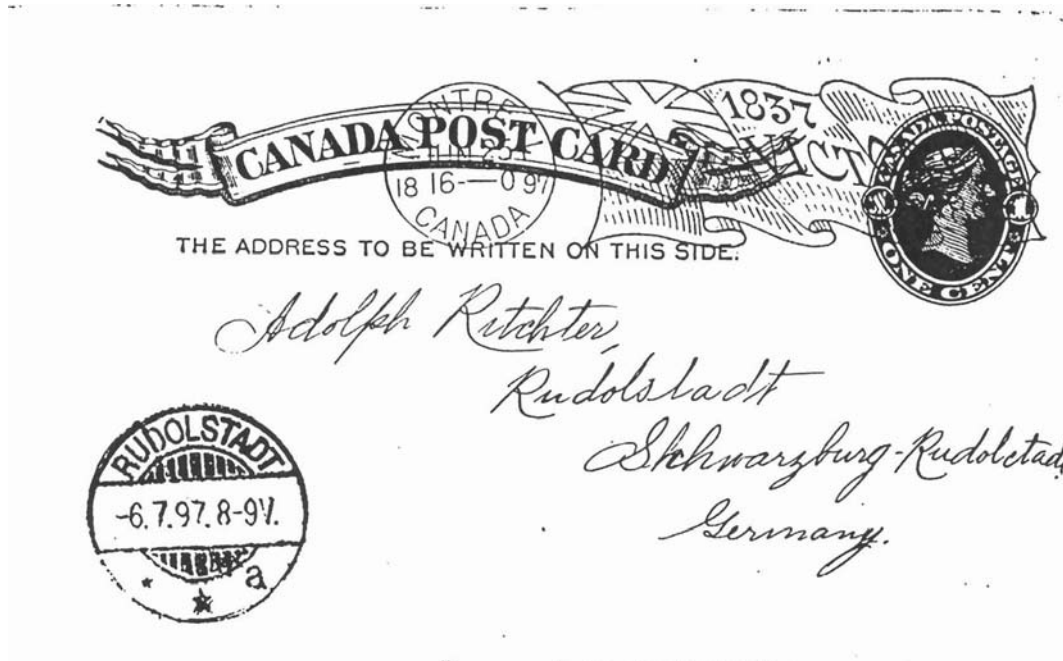 CANADA POST CARD
1837
VICT
CANADA POSTAGE
1 1
ONE CENT
18 16-0 97
CANADA
THE ADDRESS TO BE WRITTEN ON THIS SIDE.
Adolph Ritchter,
Rudolstadt
Skhwarzburg-Rudolstad
Germany.
RUDOLSTADT
-6.7.97.8-9V.
a